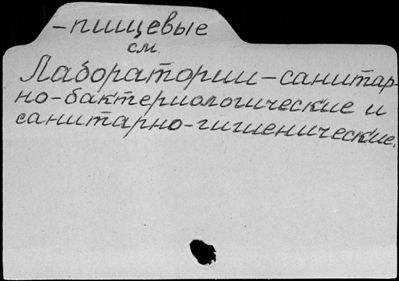 -пищевые
см.
Лаборатории-санитар-
но-бактериологические и
санитарно-гигиенические.